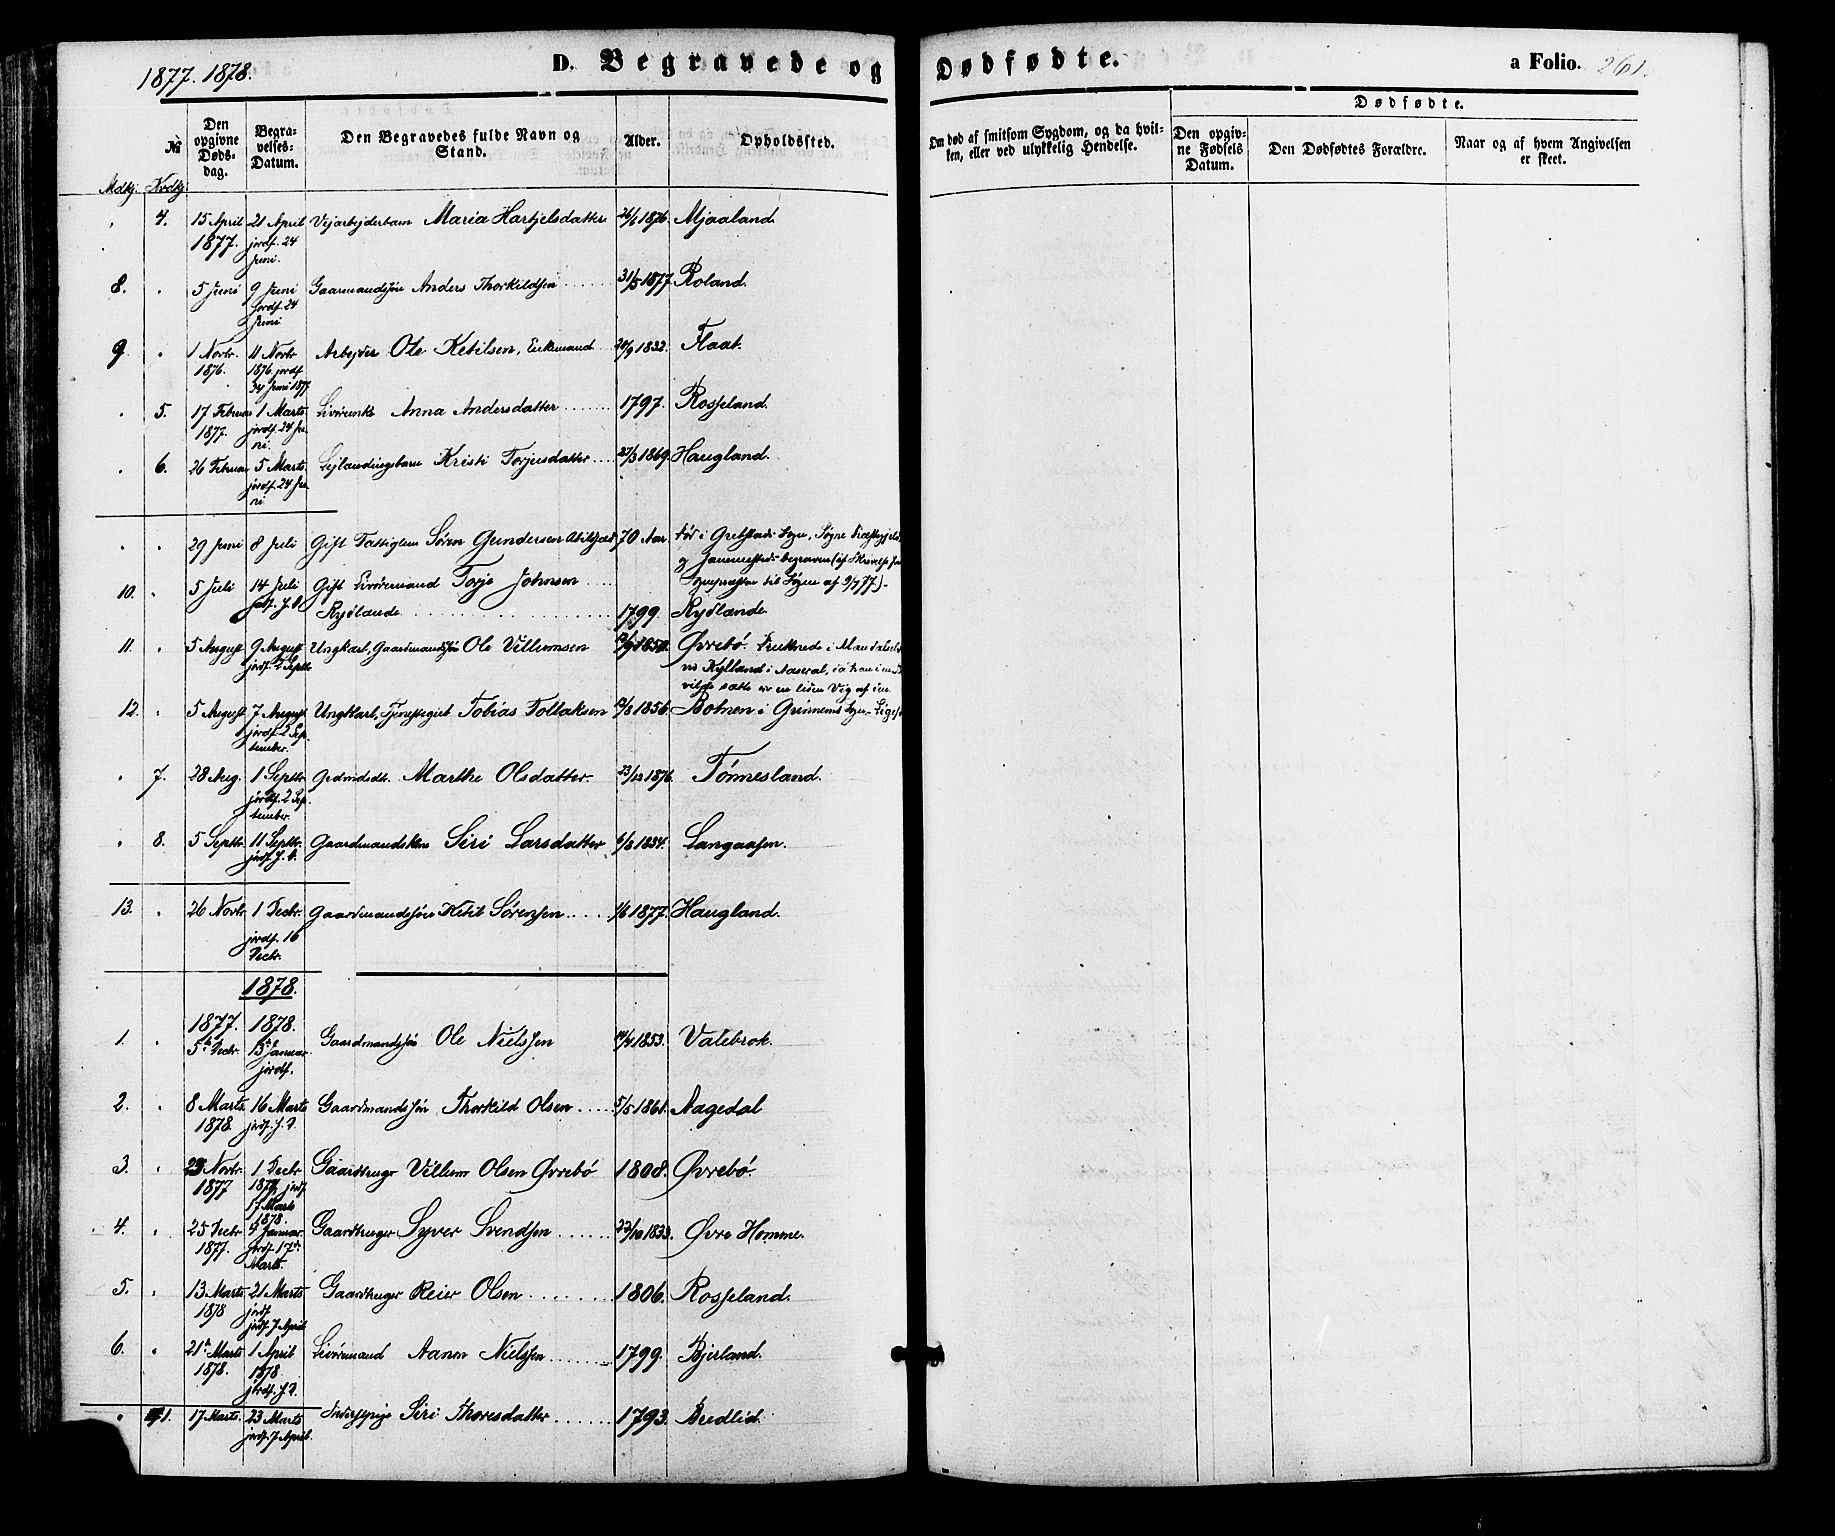 1877. 1878.
D. Begravede og Dødfødte.
a Folio. 261.
№
Den opgivne Døds-dag.
Begra-velses-Datum.
Den Begravedes fulde Navn og Stand.
Alder.
Opholdssted.
Om død af smitsom Sygdom, og da hvil-ken, eller ved ulykkelig Hendelse.
Dødfødte.
Den opgiv-ne Fødsels Datum.
Den Dødfødtes Forældre.
Naar og af hvem Angivelsen er skeet.
Mdkj. Kvdkj.
4. 15 April 1877. 21 April jordf. 24 Juni. Vejarbejderbarn Maria Hartjelsdatter 26/6 1876. Mjaaland.
8. 5 Juni 9 Juni jordf. 24 Juni Gaarmandssøn Anders Thorkildsen 31/5 1877. Roland.
9. 1 Novbr 1876. 11 Novbr 1876. jordf. 24 Juni 1877 Arbejder Ole Ketilsen, Enkemand 20/9 1832. Flaat.
5. 17 Februar 1877. 1 Marts jordf. 24 Juni. Livørenke Anna Andersdatter 1797. Rosseland.
6. 26 Februar 5 Marts. jordf. 24 Juni. Lejlændingsbarn Kristi Torjusdatter 27/3 1869. Haugland.
29 Juni 8 Juli Gift Fattiglem Søren Gundersen 70 Aar. Død i Grebstads Sogn, Søgne
10. 5 Juli 14 Juli Gift Livøremand Torje Johnsen Rydlande 1799. Rydlande
11. 5 August 9 August jordf. 2 Septbr Ungkarl, Gaardmandssøn Ole Villumsen 1850. Øvrebø. Druknede i Mandalselv
Kylland i Aaseral, da han i en
sætte over en liden Vig af den
12. 5 August 7 August jordf. 2 September. Ungkarl, Tjenestegut Tobias Tollaksen 1856. Botnen i
7. 28 Aug. 1 Septbr. jordf. 2 September. Grdmdsdt. Marthe Olsdatter. 23/12 1876. Tønnesland.
8. 5 Septbr. 11 Septbr. jordf. s. D. Gaardmandskone Siri Larsdatter 6/8 1834. Langaasen.
13. 26 Novbr. 1 Decbr. jordf. 16 Decbr. Gaardmandssøn Ketil Sørensen 1/6 1877. Haugland.
1878.
1. 1877. 5te Decbr. 1878. 13de Januar jordf. Gaardmandssøn Ole Nielssen 14/4 1853. Valebrok.
2. 8 Marts. 1878. 16 Marts jordf. s. D. Gaardmandssøn Thorkild Olsen 5/5 1861. Aagedal
3. 23 Novbr. 1877 1 Decbr 1877, jordf. 17 Marts 1878. Gaardbruger Villum Olsen Øvrebø 1808. Øvrebø.
4. 25 Decbr 1877. 4 Januar jordf. 17de Marts. Gaardbruger Syver Svendsen 22/10 1833. Øvre Homme.
5. 13 Marts. 1878 21 Marts jordf jordf. 7 April Gaardbruger Reier Olsen 1806. Rosseland.
6. 21de Marts 1878. 1 April 1878. jordf. s. D. Livøremand Aanon Nielssen 1799. Bjerland.
1. 17 Marts. 23 Marts jordf. 7 April. Inderstpige Siri Thoresdatter 1793. Bredlid.